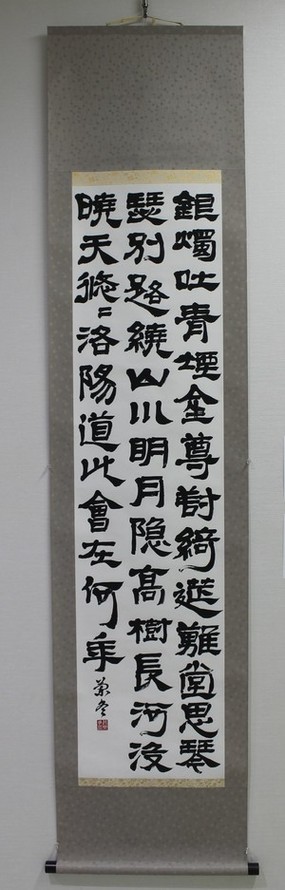 銀燭吐青煙金尊對綺筵離堂思琴
瑟別路繞山川明月隠高樹長河没
曉天悠〻洛陽道此會在何年